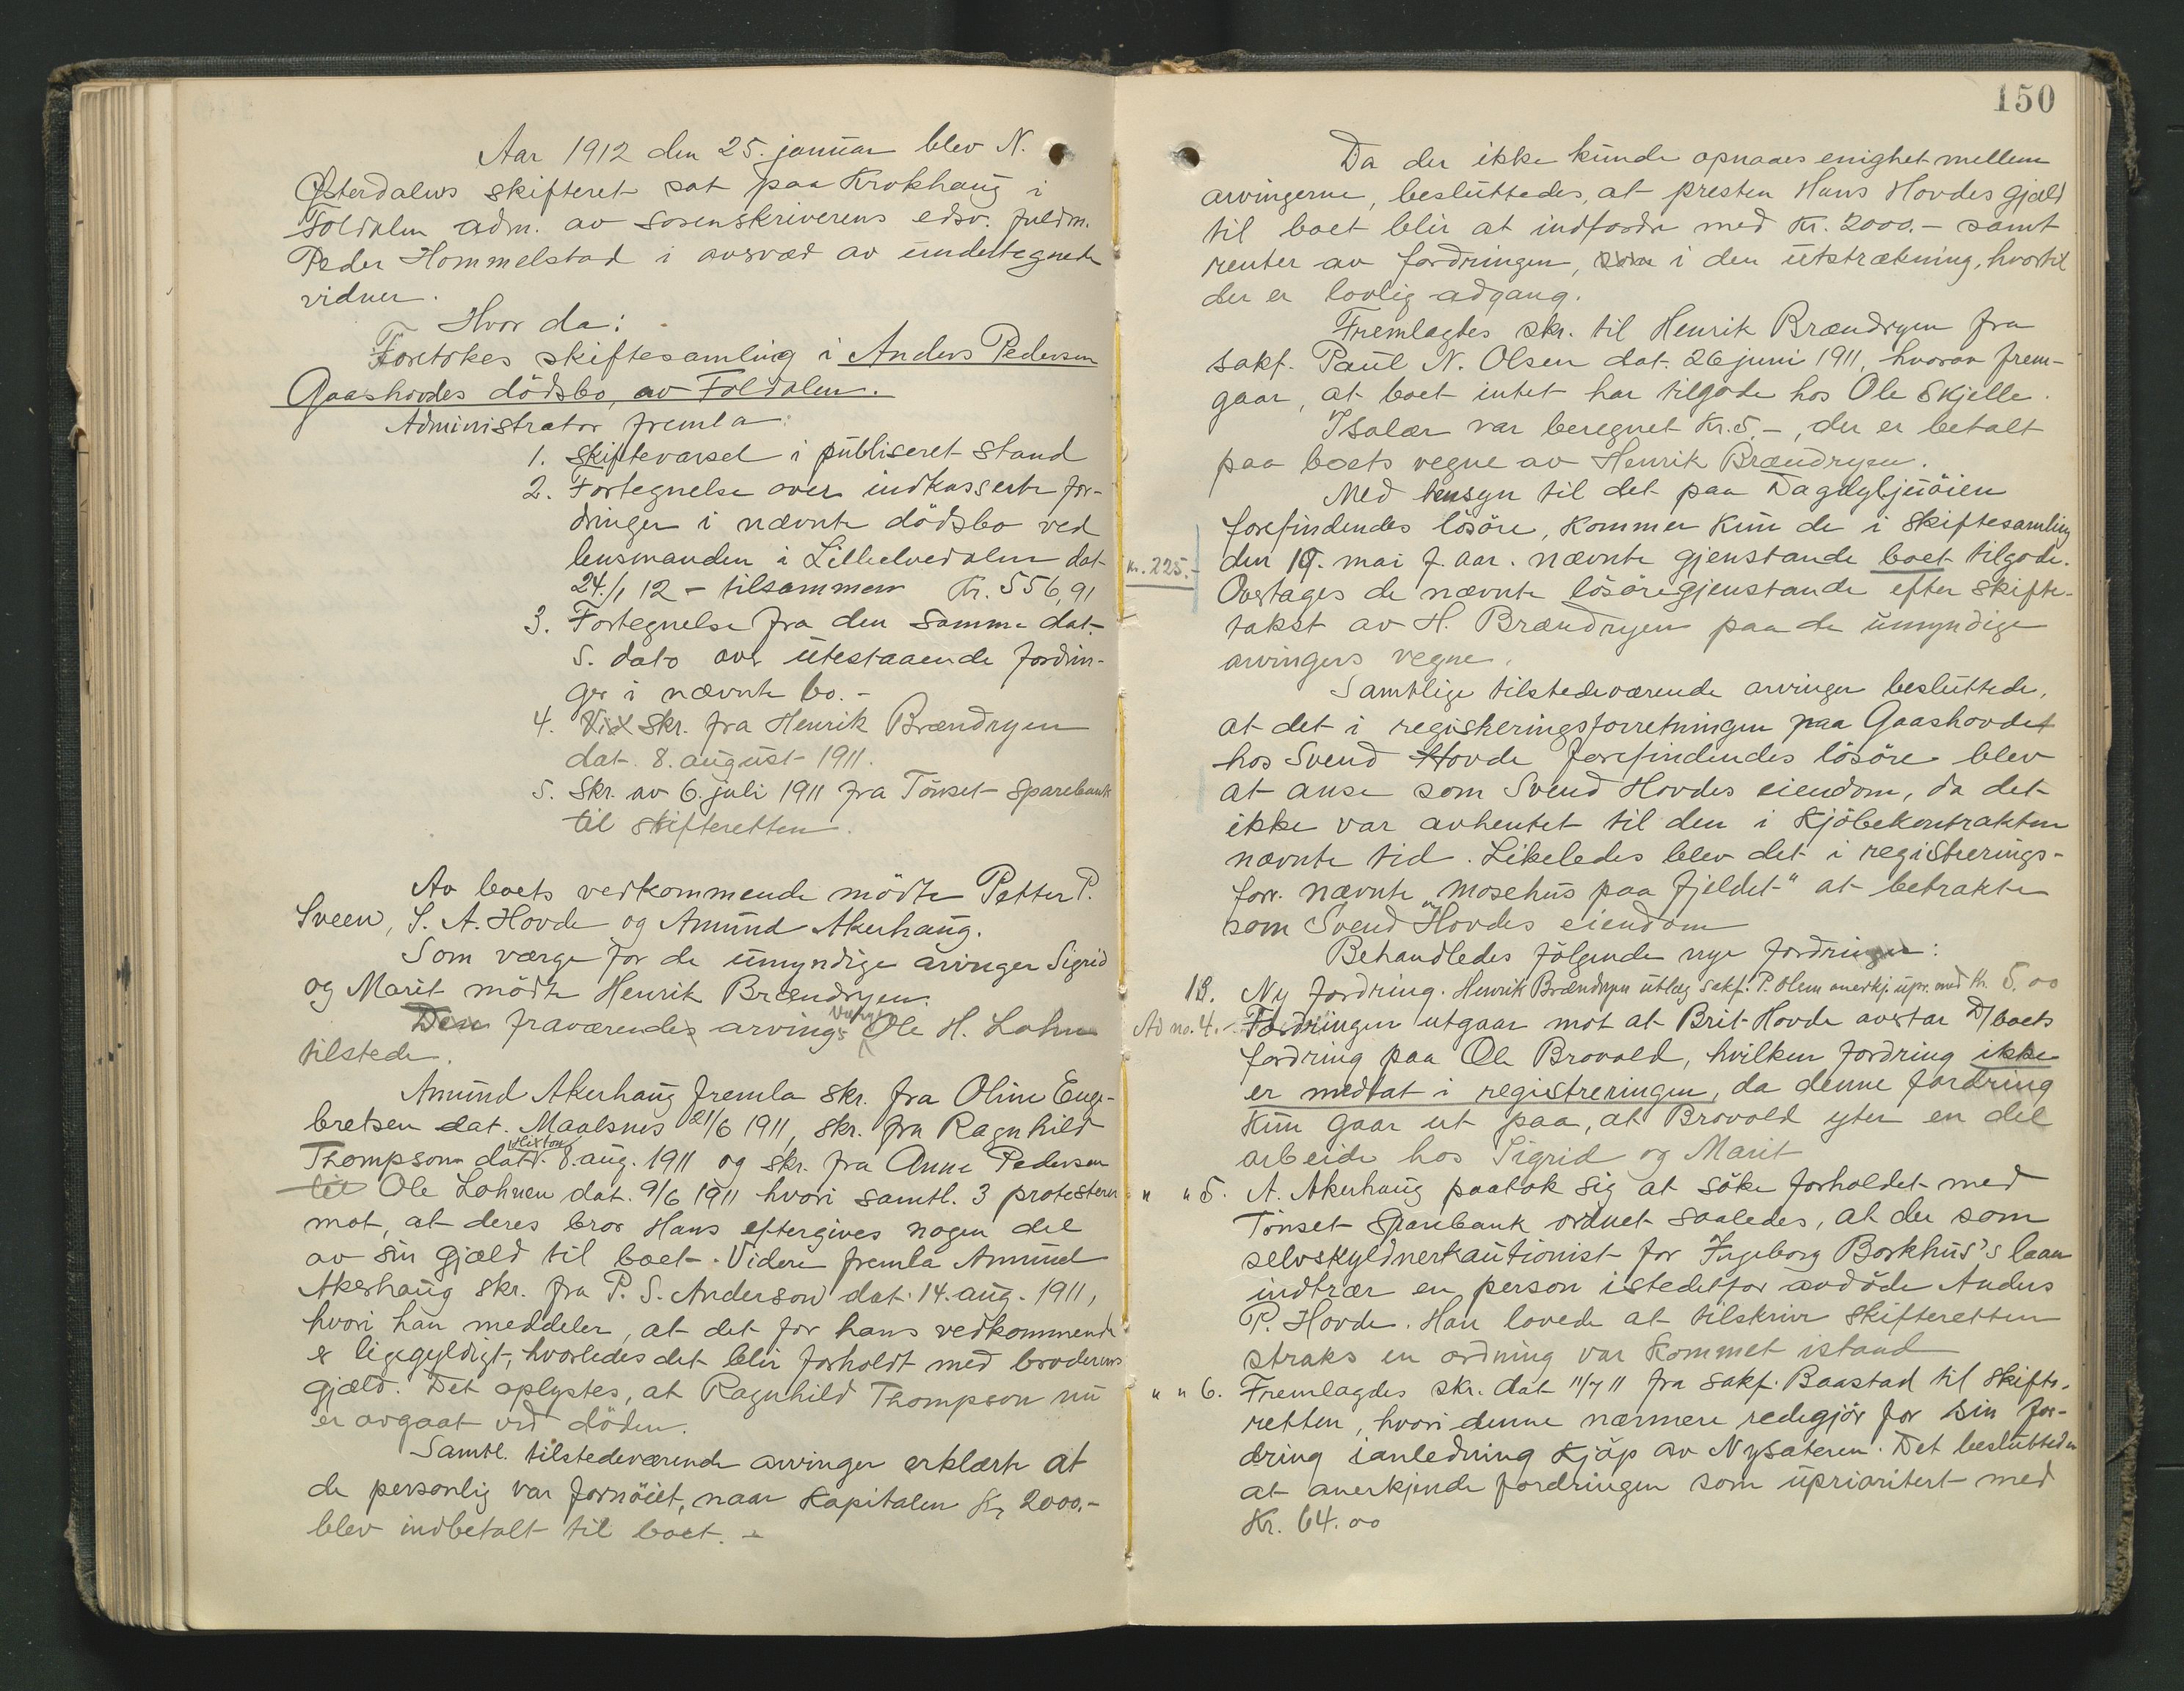 Aar 1912 den 25. januar blev N.
Østerdalens skifteret sat paa Krokhaug i
Foldalen adm. av sorenskriverens edsv. fuldm.
Peder Hommelstad i overvær av undertegnede
vidner.
Hvor da:
Foretokes skiftesamling i Anders Pedersen
Gaashovdes dödsbo, av Foldalen.
Administrator fremla:
1. Skiftevarsel i publiseret stand
2. Fortegnelse over indkasserte for-
dringer i nævnte dödsbo ved
lensmanden i Lilleelvedalen dat.
24./1 12 – tilsammen Kr. 556,91
3. Fortegnelse fra den samme dat.
s. dato over utestaaende fordrin-
ger i nævnte bo. –
4. Skr. fra Henrik Brændryen
dat. 8. august 1911.
5. Skr. av 6. juli 1911 fra Tönset Sparebank
til skifteretten.
Av boets vedkommende mödte Petter P.
Sveen, S. A. Hovde og Amund Akerhaug.
Som værge for de umyndige arvinger Sigrid
og Marit mödte Henrik Brændryen.
Den fraværendes arvings værge Ole H. Lohne
tilstede.
Amund Akerhaug fremla skr. fra Oline Enge-
bretsen dat. Maalsnes 21/6 1911, skr. fra Ragnhild
Thompson dat. Hixton 8. aug. 1911 og skr. fra Anne Pedersen
til Ole Lohnen dat. 9/6 1911 hvori samtl. 3 protesterer
mot, at deres bror Hans eftergives nogen del
av sin gjæld til boet. Videre fremla Amund
Akerhaug skr. fra P. S. Anderson dat. 14. aug. 1911,
hvori han meddeler, at det for hans vedkommende
er ligegyldigt, hvorledes det blir forholdt med broderens
gjæld. Det oplystes, at Ragnhild Thompson nu
er avgaat ved döden.
Samtl. tilstedeværende arvinger erklærte at
de personlig var fornöiet, naar kapitalen Kr. 2000,-
blev indbetalt til boet. –
150
Da der ikke kunde opnaaes enighet mellem
arvingerne, besluttedes, at presten Hans Hovdes gjæld
til boet blir at indfordre med Kr. 2000.– samt
renter av fordringen, som i den utstrækning, hvortil
der er lovlig adgang.
Fremlagtes skr. til Henrik Brændryen fra
sakf. Paul N. Olsen dat. 26 juni 1911, hvorav frem-
gaar, at boet intet har tilgode hos Ole Skjelle.
I salær var beregnet Kr. 5,–, der er betalt
paa boets vegne av Henrik Brændryen.
Med hensyn til det paa
forefindendes lösöre, kommer kun de i skiftesamling
Kr. 225.– den 19. mai f. aar. nævnte gjenstande boet tilgode.
Overtages de nævnte lösöregjenstande efter skifte-
takst av H. Brændryen paa de umyndige
arvingers vegne.
Samtlige tilstedeværende arvinger besluttede,
at det i registreringsforretningen paa Gaashovdet
hos Svend Hovde forefindendes lösöre blev
at anse som Svend Hovdes eiendom, da det
ikke var avhentet til den i kjöbekontrakten
nævnte tid. Likeledes blev det i registrerings-
forr. nævnte „mosehus paa fjeldet" at betrakte
som Svend Hovdes eiendom
Behandledes fölgende nye fordringer:
18. Ny fordring. Henrik Brændryen utlæg sakf. P. Olsen anerkj. upr. med Kr. 5.00
Ad no. 4. Fordringen utgaar mot at Brit Hovde avstar boets
fordring paa Ole Brovold, hvilken fordring ikke
er medtat i registreringen, da denne fordring
kun gaar ut paa, at Brovold yter en del
arbeide hos Sigrid og Marit
" " 5. A. Akerhaug paatok sig at söke forholdet med
Tönset Sparebank ordnet saaledes, at der som
selvskyldnerkautionist for Ingeborg Borkhus's laan
indtrær en person istedetfor avdöde Anders
P. Hovde. Han lovede at tilskrive skifteretten
straks en ordning var kommet istand
" " 6. Fremlagdes skr. dat 11/7 11 fra sakf. Baastad til skifte-
retten, hvori denne nærmere redegjör for sin for-
dring ianledning kjöp av Nysæteren. Det besluttedes
at anerkjende fordringen som uprioritert med
Kr. 64.00